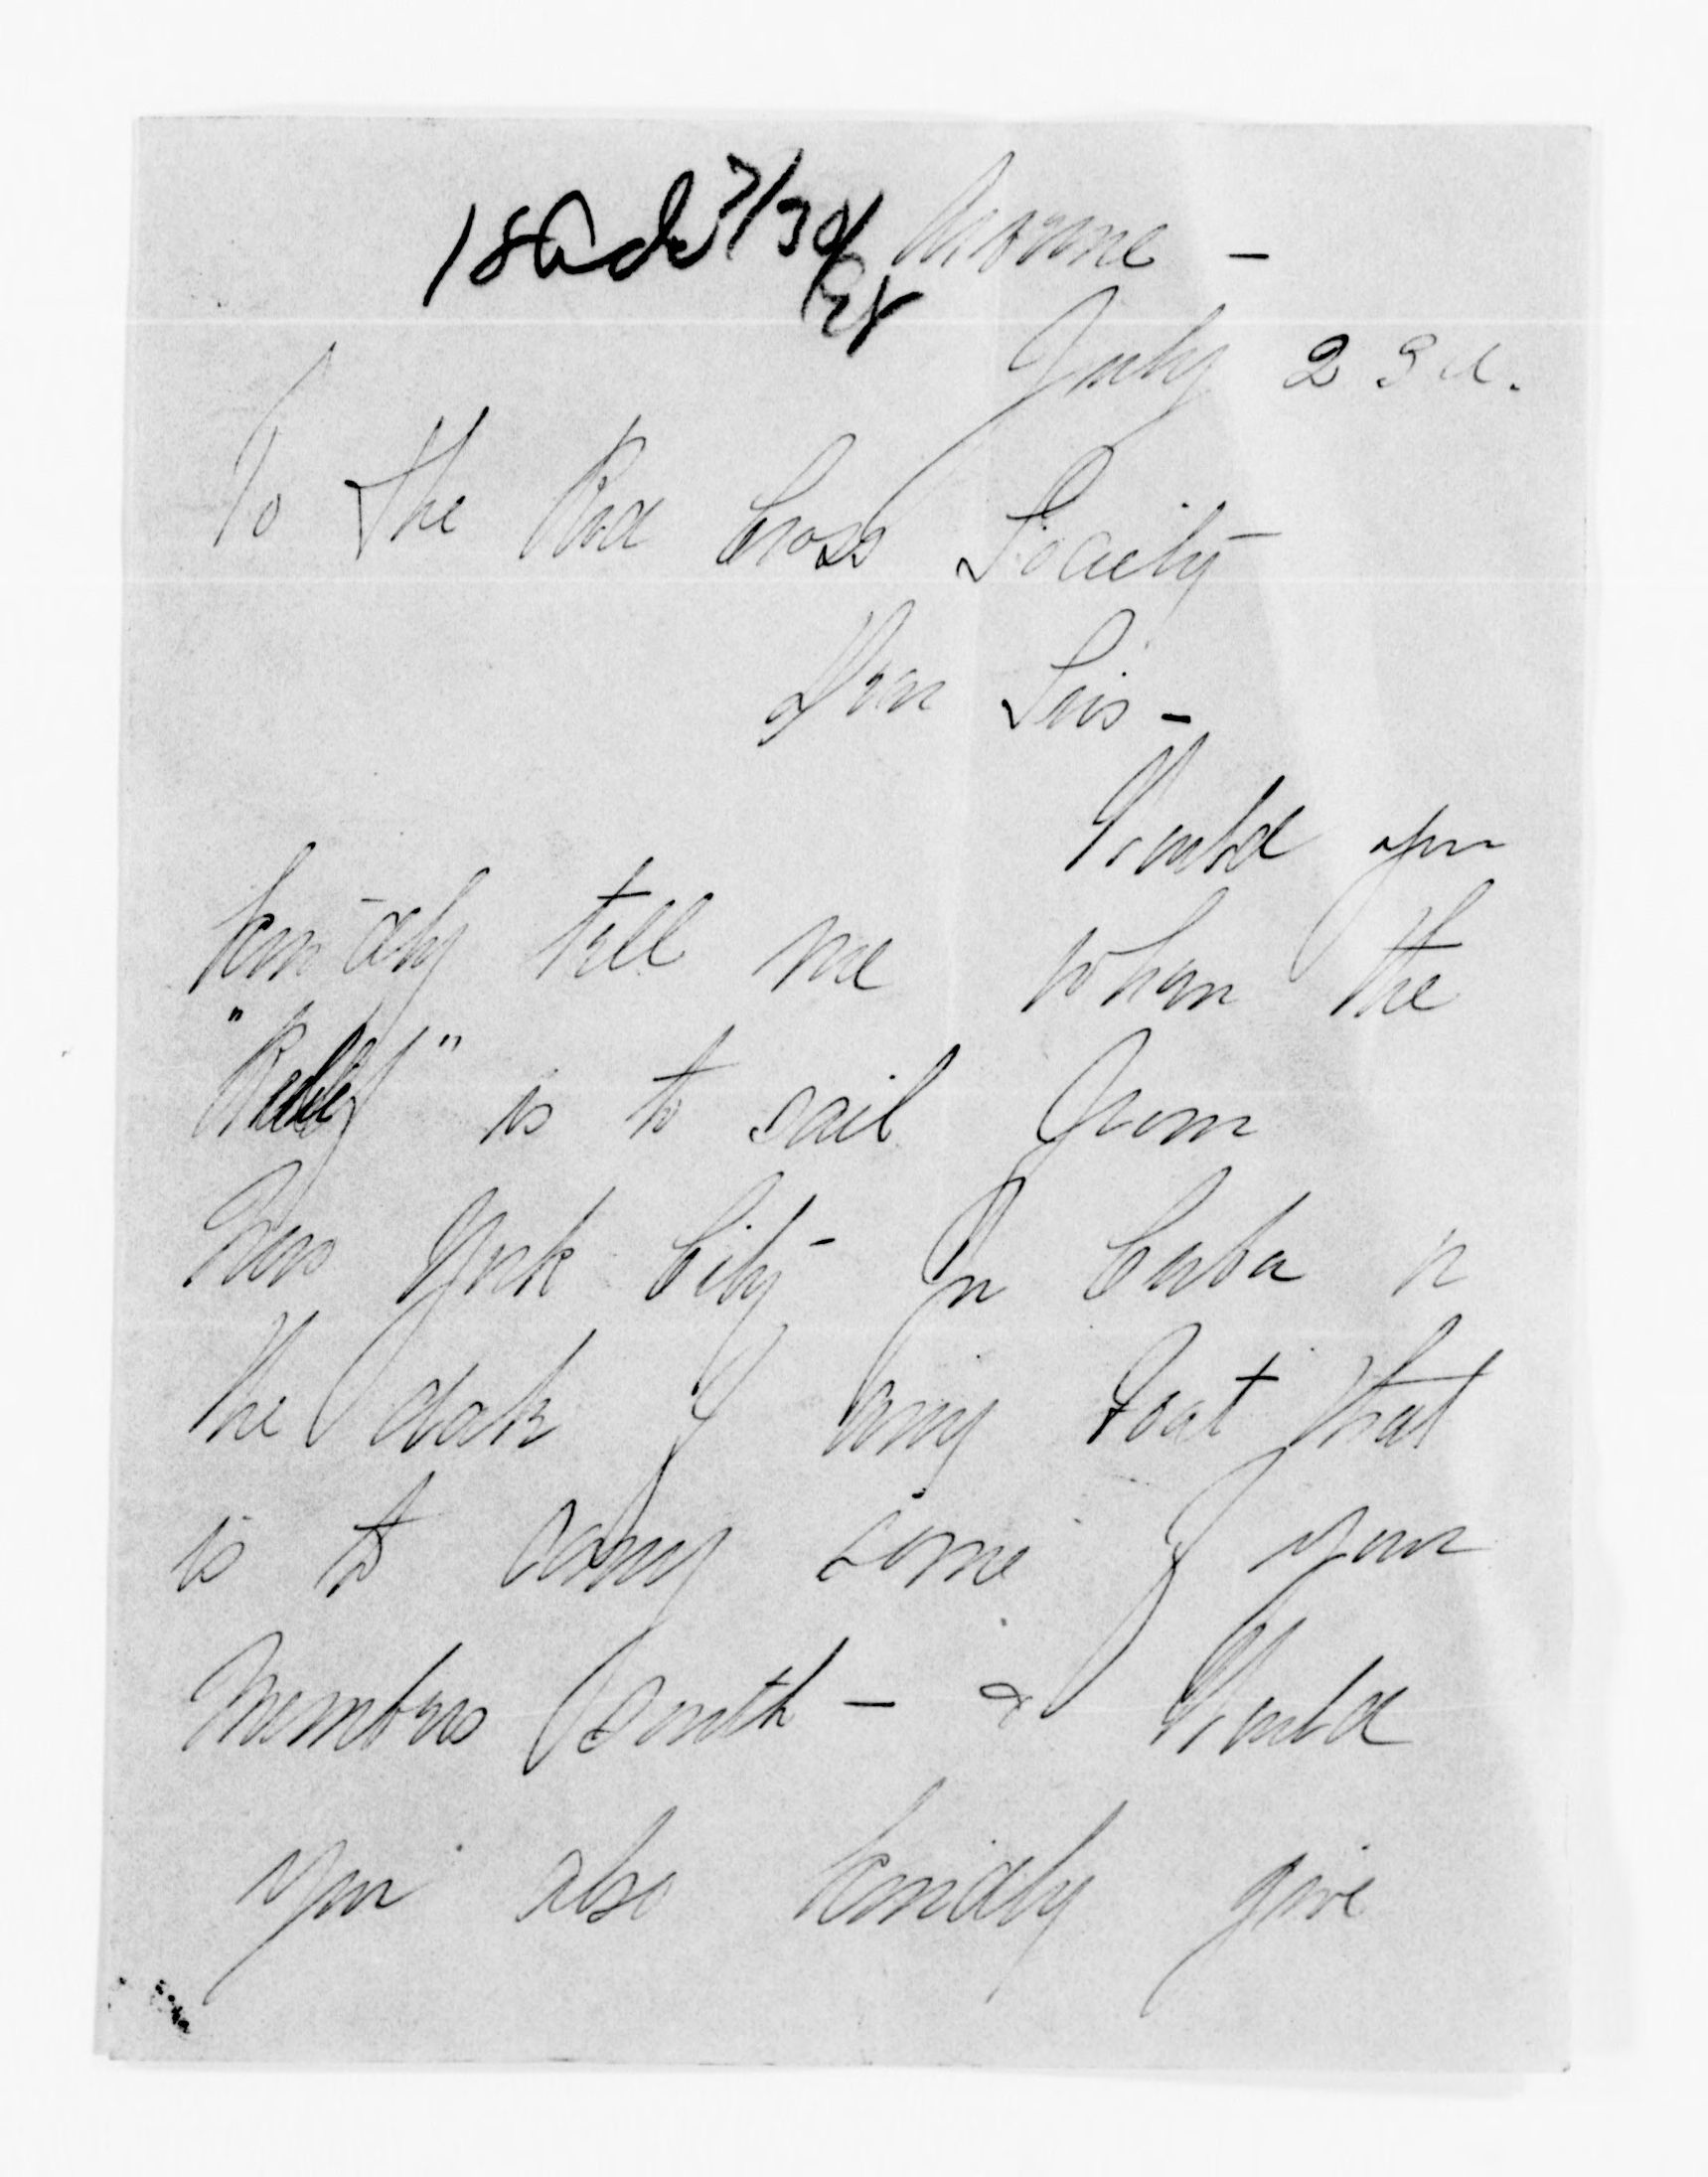 7/30
July 23d.
To the Red Cross Society
Dear Sirs -
Would you
kindly tell me when the
"Relief" is to sail from
New York City - for Cuba or
the date of any boat that
is to carry some of your
members South - & Would
you also kindly give